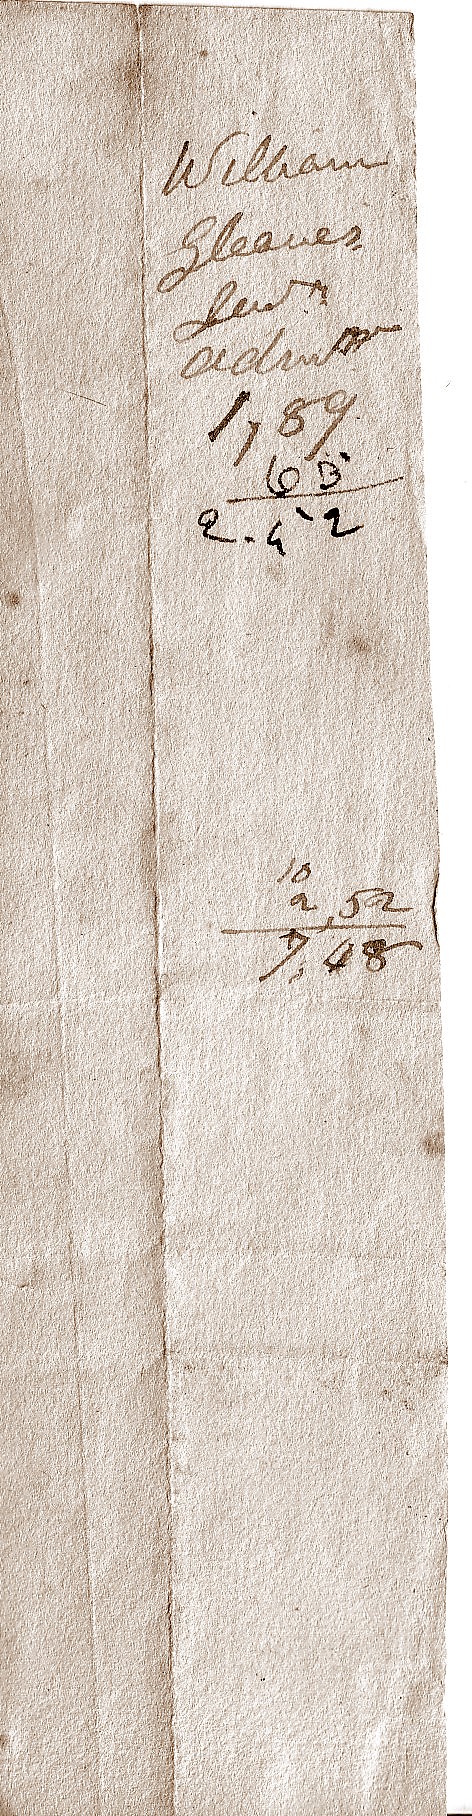 William
Gleaves
Senr
admr
1,89
63
2.52
10
2,52
7,48